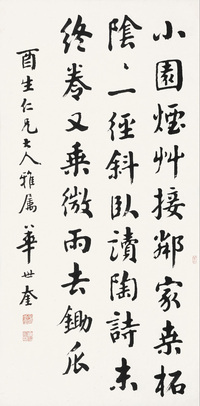 小園煙艸接鄰家桑柘
陰二一徑斜臥讀陶詩未
終卷又乘微雨去鋤瓜
酉生仁兄大人雅屬 華世奎